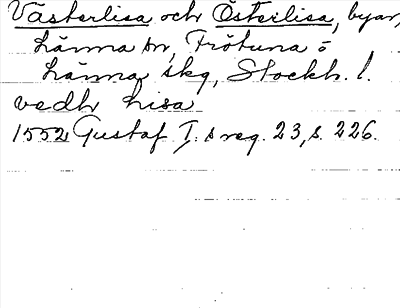 Västerlisa och Österlisa, byar,
Länna sn, Frötuna o
Länna skg, Stockh. l.
vedh Lisa
1552 Gustaf I. s reg. 23, s. 226.